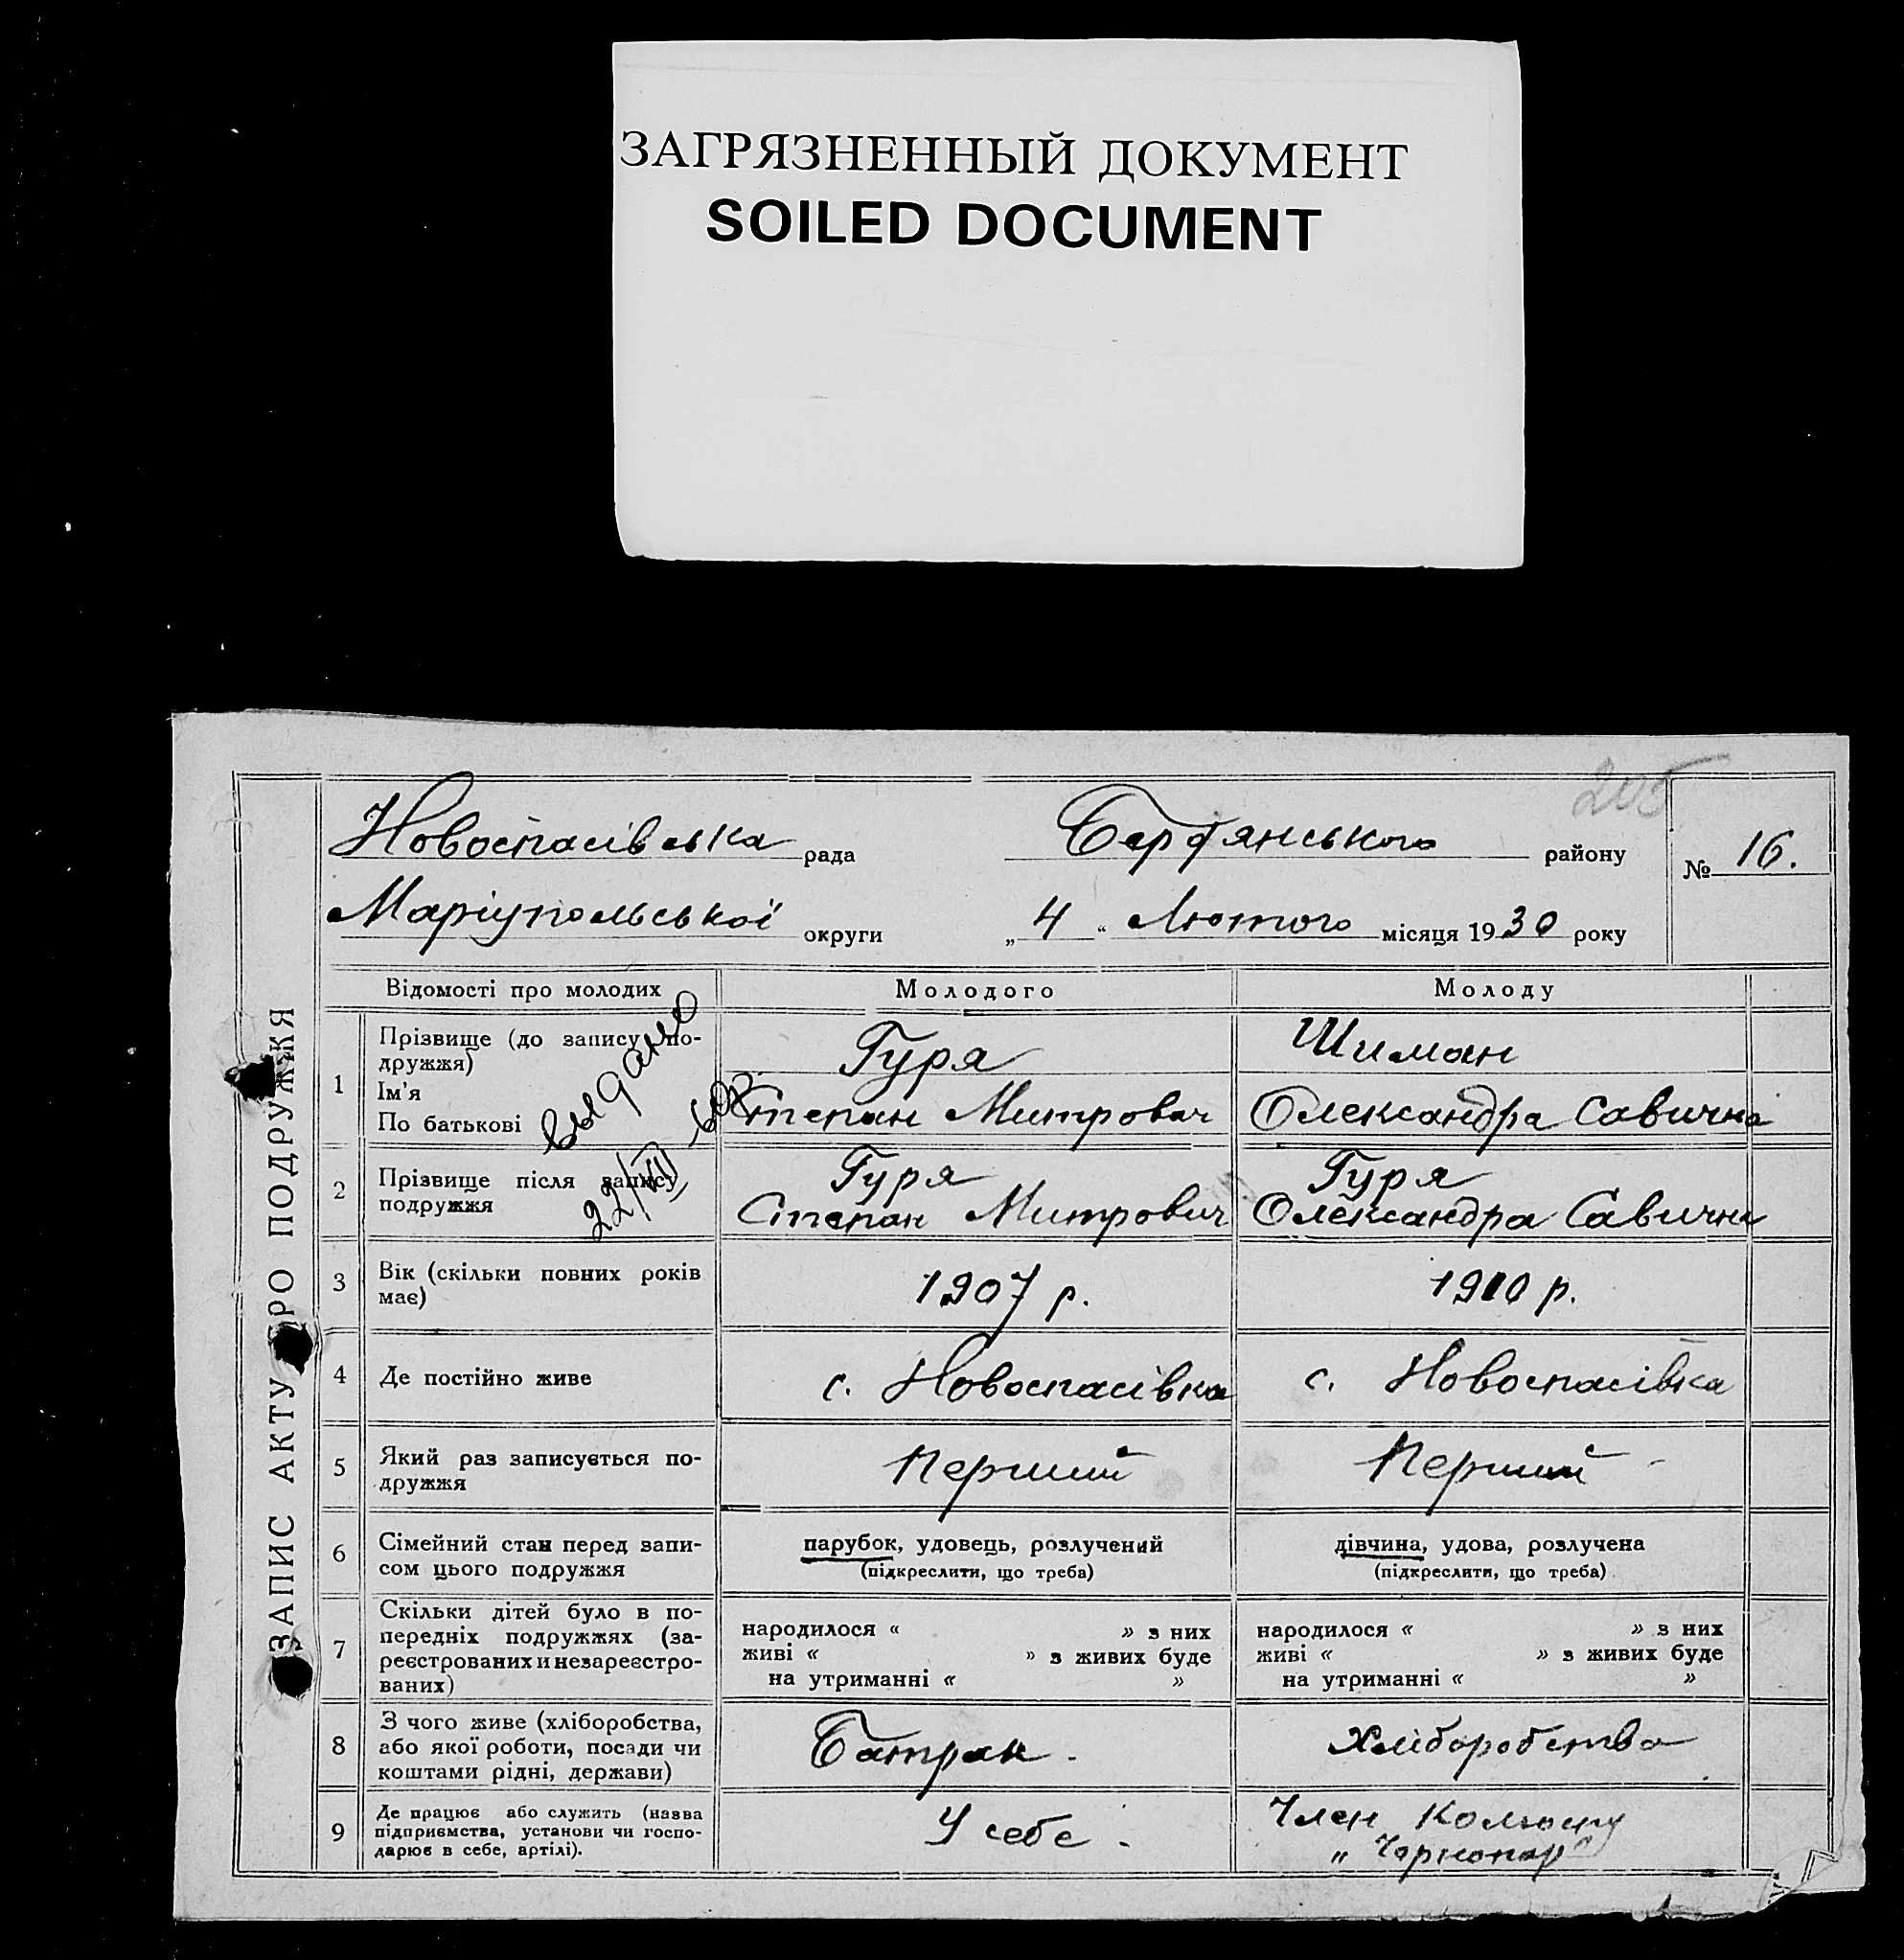 ЗАГРЯЗНЕННЫЙ ДОКУМЕНТ
SOILED DOCUMENT
205
ЗАПИС АКТУ ПРО ПОДРУЖЖЯ
Новоспасівська рада Берд'янського району № 16.
Маріупольської округи „4“ Лютого місяця 1930 року
Відомості про молодих Молодого Молоду
1 Прізвище (до запису по-
дружжя)
Ім'я
По батькові
Гуря
Степан Митрович
Шиман
Олександра Савична
выдано
22/VII
2 Прізвище після запису
подружжя
Гуря
Степан Митрович
Гуря
Олександра Савична
3 Вік (скільки повних років
має)
1907 р. 1910 р.
4 Де постійно живе с. Новоспасівка с. Новоспасівка
5 Який раз записується по-
дружжя
Перший Перший
6 Сімейний стан перед запи-
сом цього подружжя
парубок, удовець, розлучений
(підкреслити, що треба)
дівчина, удова, розлучена
(підкреслити, що треба)
7 Скільки дітей було в по-
передніх подружжях (за-
реєстрованих и незареєстро-
ваних)
народилося « » з них
живі « » з живих буде
на утриманні « »
народилося « » з них
живі « » з живих буде
на утриманні « »
8 З чого живе (хліборобства,
або якої роботи, посади чи
коштами рідні, держави)
Батрак. Хліборобства
9 Де працює або служить (назва
підприємства, установи чи госпо-
дарює в себе, артілі).
У себе.
Член Кользону
„Чорнопар“